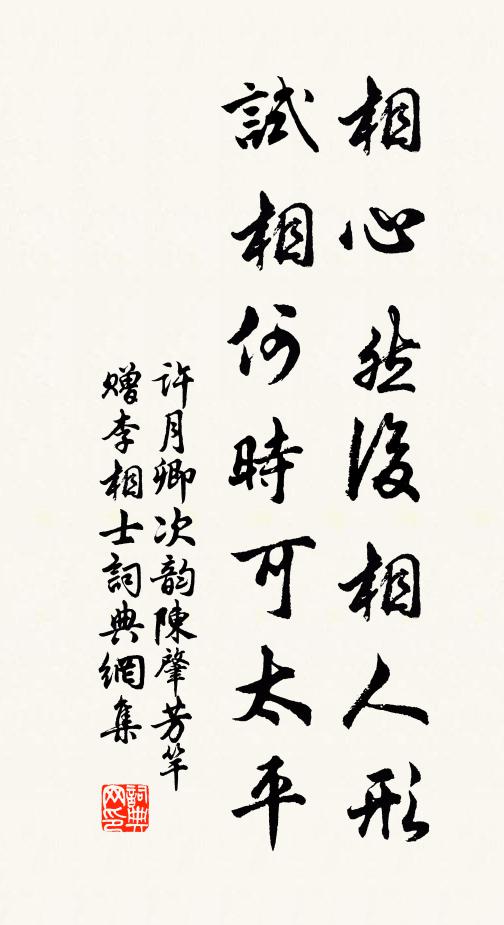 相心然後相人形
試相何時可太平
許月卿次韵陳肇芳竿
贈李相士詞典網集
詞典网印